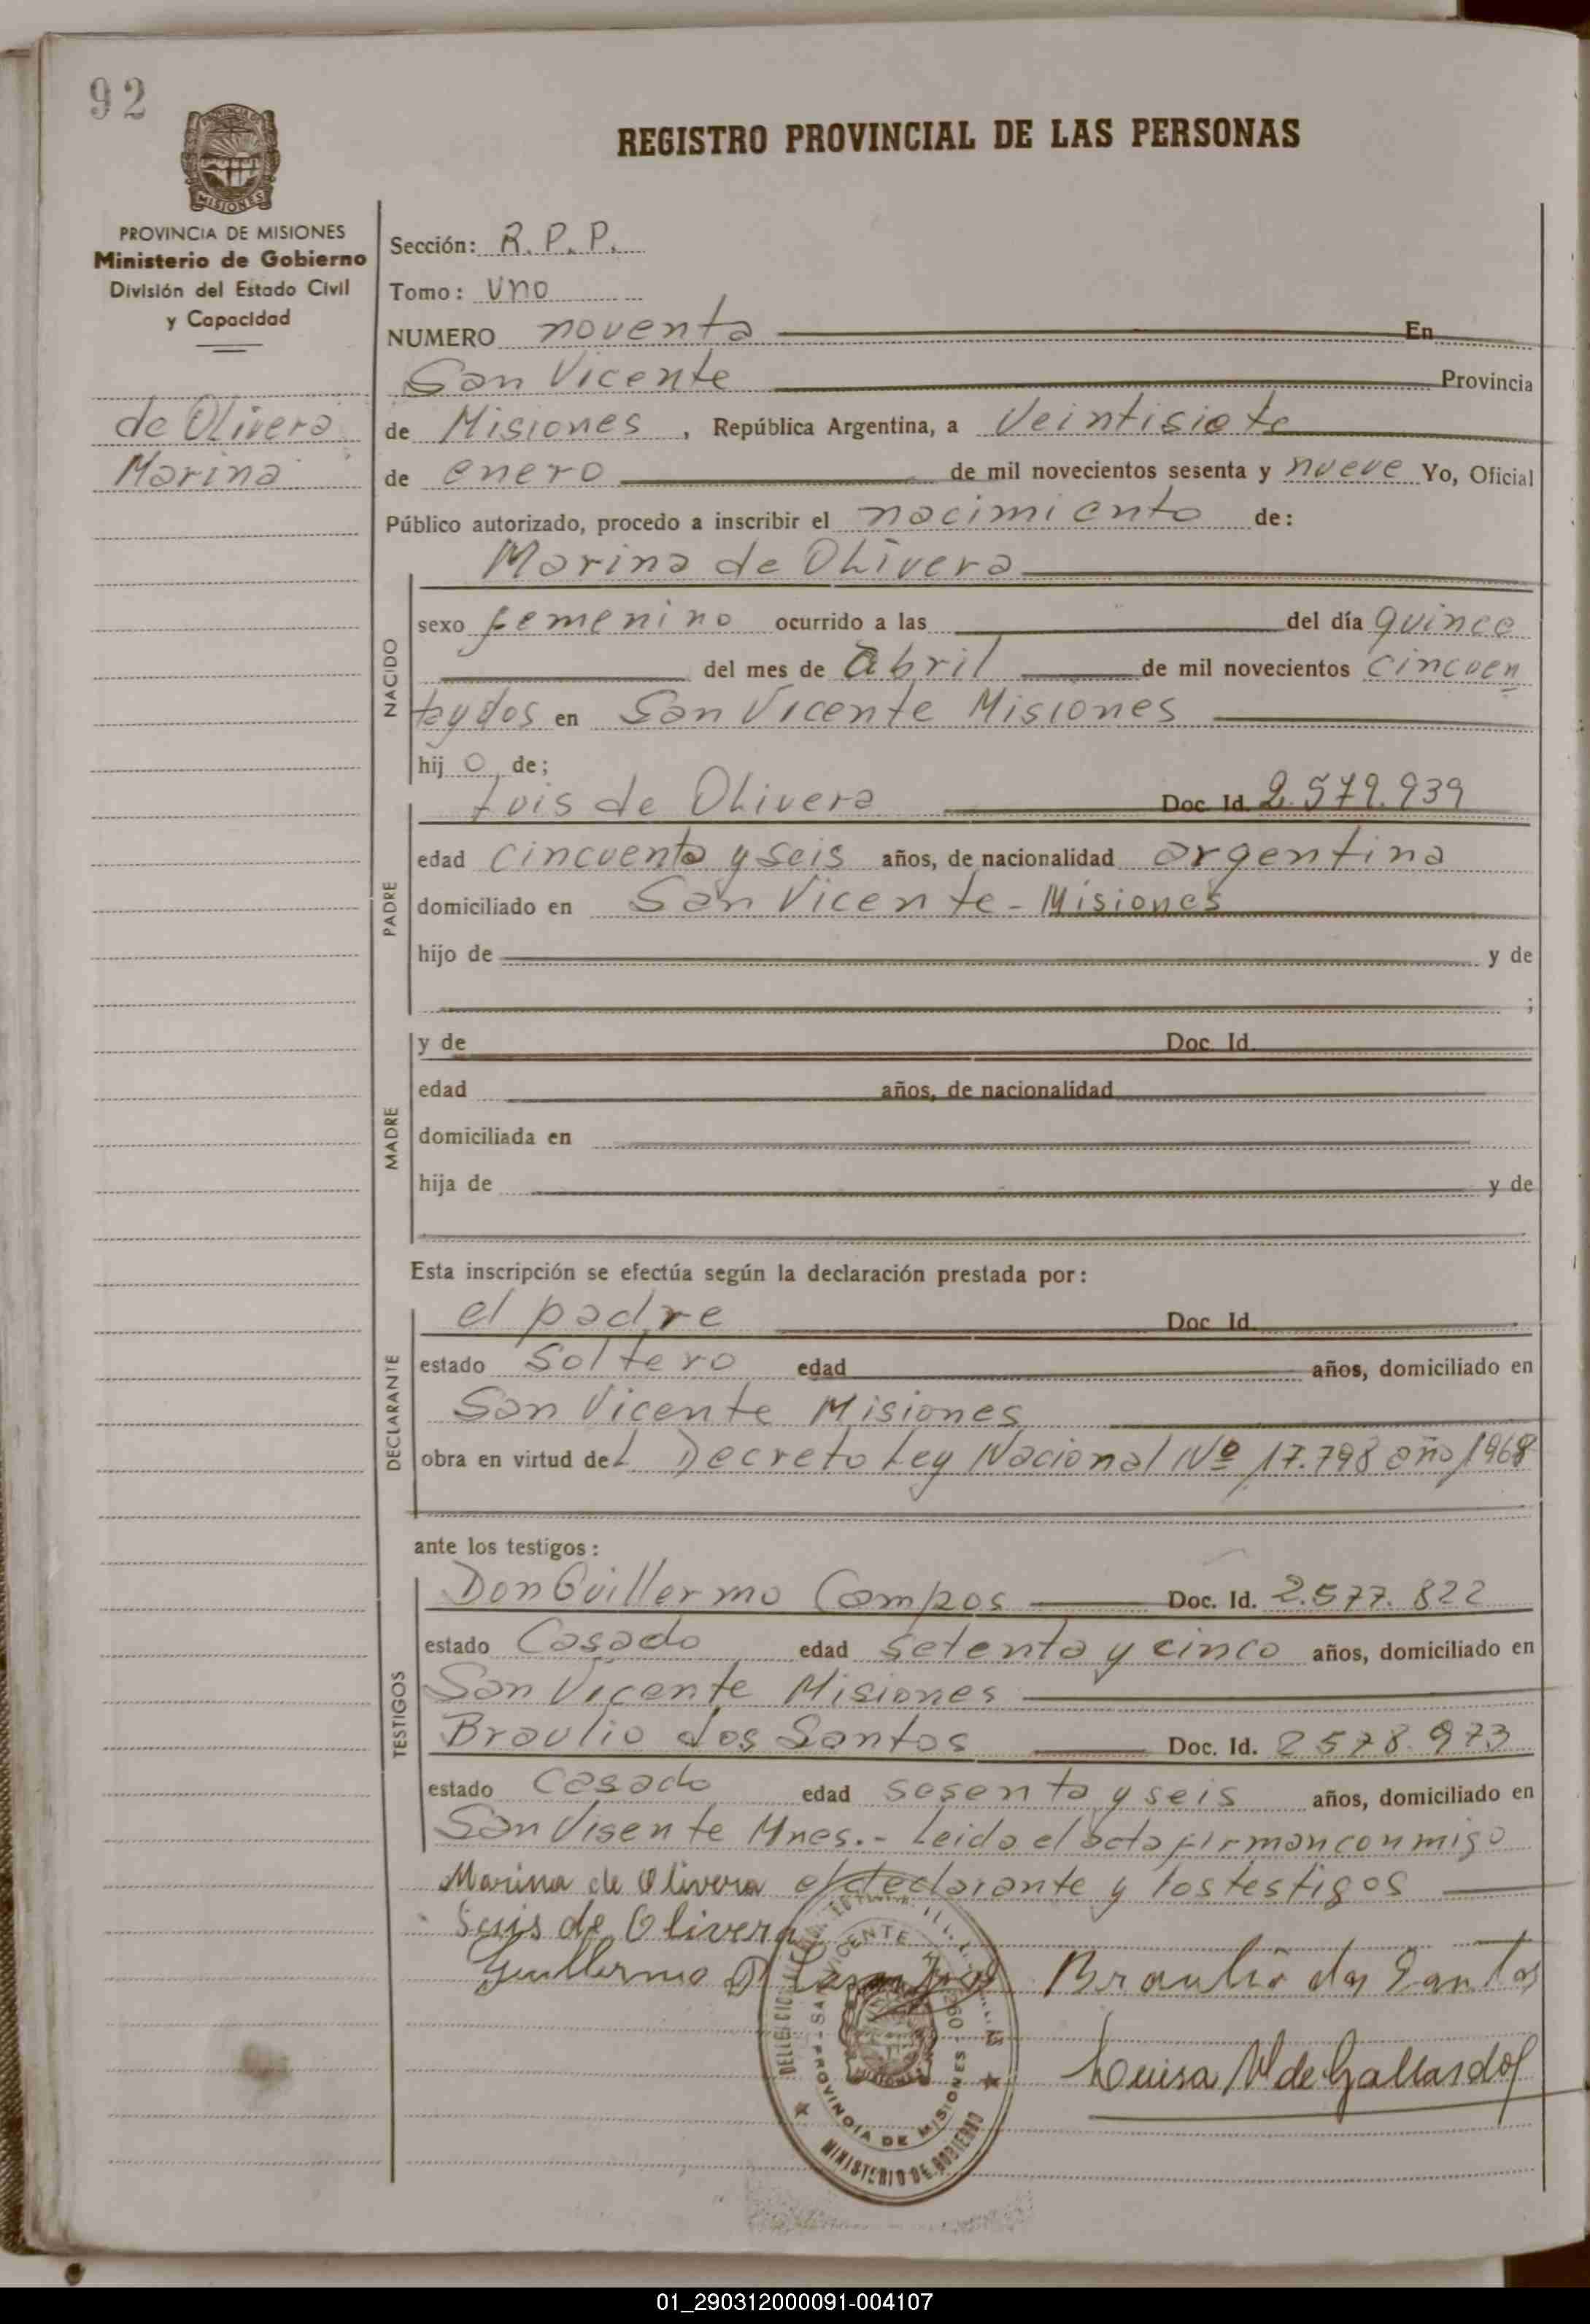 92
REGISTRO PROVINCIAL DE LAS PERSONAS
MISIONES
PROVINCIA DE MISIONES
Ministerio de Gobierno
División del Estado Civil
y Capacidad
de Olivera
Marina
Sección: R. P. P.
Tomo: uno
NUMERO noventa En
San Vicente Provincia
de Misiones, República Argentina, a Veintisiete
de enero de mil novecientos sesenta y nueve Yo, Oficial
Público autorizado, procedo a inscribir el nacimiento de:
NACIDO
Marina de Olivera
sexo femenino ocurrido a las del día quince
del mes de abril de mil novecientos cincuen
taydos en San Vicente Misiones
hij o de;
PADRE
Luis de Olivera Doc. Id. 2.579.939
edad cincuenta y seis años, de nacionalidad argentina
domiciliado en San Vicente - Misiones
hijo de y de
;
MADRE
y de Doc. Id.
edad años, de nacionalidad
domiciliada en
hija de y de
Esta inscripción se efectúa según la declaración prestada por:
DECLARANTE
el padre Doc. Id.
estado Soltero edad años, domiciliado en
San Vicente Misiones
obra en virtud del Decreto Ley Nacional Nº 17.798 año 1968
ante los testigos:
TESTIGOS
Don Guillermo Campos Doc. Id. 2.577.822
estado Casado edad setenta y cinco años, domiciliado en
San Vicente Misiones
Braulio dos Santos Doc. Id. 2578.973
estado casado edad sesenta y seis años, domiciliado en
San Visente Mnes.- Leida el acta firman conmigo
Marina de Olivera el declarante y los testigos
Luis de Olivera
Guillermo Braulio dos Santos
Luisa de Gallardo
SAN VICENTE
PROVINCIA DE MISIONES
MINISTERIO DE GOBIERNO
MISIONES
01_290312000091-004107